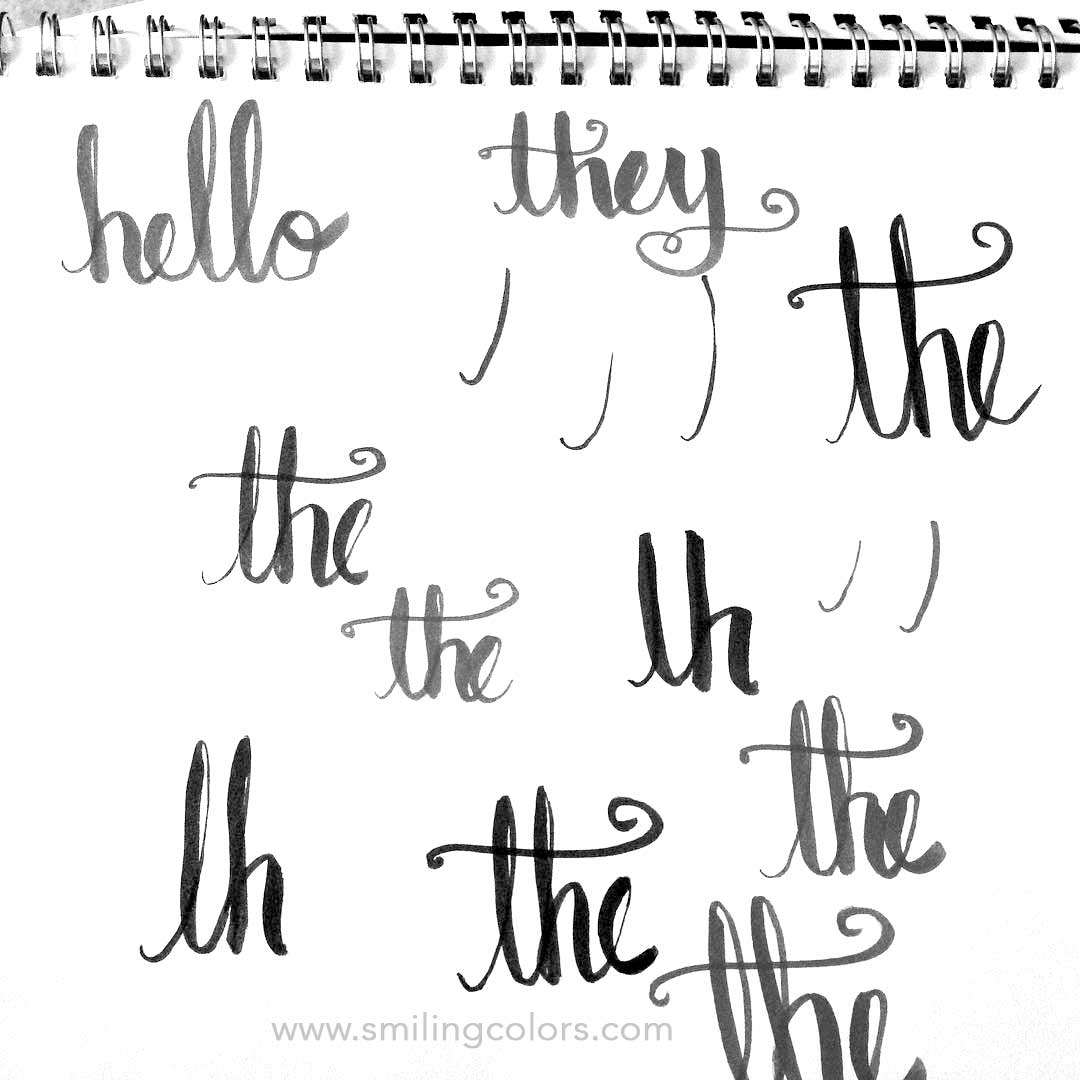 hello
they
the
the
th
the
the
th
the
the
www.smilingcolors.com